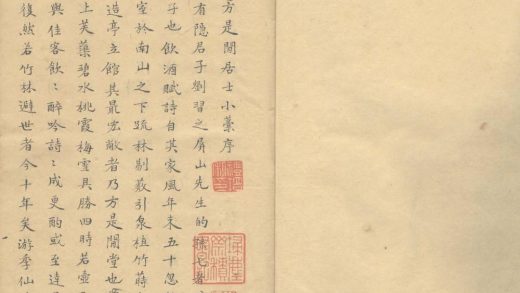 方是閒居士小藁序
有隠居子劉習之屏山先生的
子也飲酒賦詩自其家風年未五十忽
室於南山之下疏林剔薮引泉植竹蒔
造亭立館其最宏敞者乃方是閒堂也
上芙蕖碧水桃霞梅雪具勝四時若壺
與佳客飲〻醉吟詩〻成更酌或至達
復然若竹林避世者今十年矣游季仙